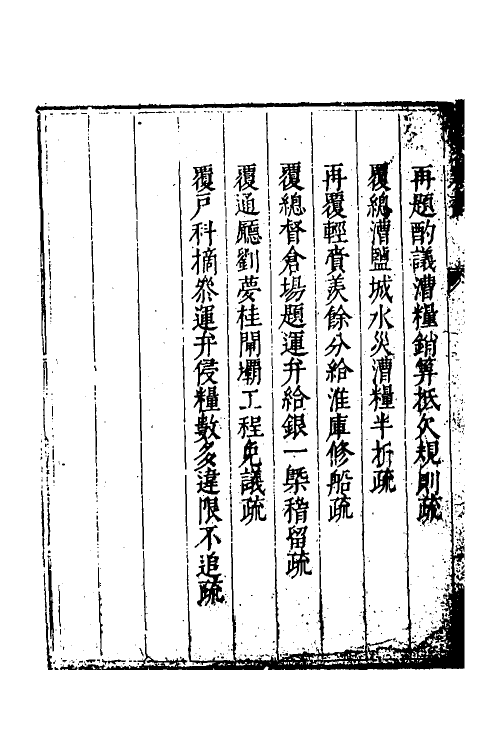 再題酌議漕糧銷算抵欠規則疏
覆總漕鹽城水災漕糧半折疏
再覆輕賫羨餘分給淮庫修船疏
覆總督倉場題運弁給銀一槩稽留疏
覆通廳劉夢桂閘壩工程免議疏
覆戸科摘叅運弁侵糧數多違限不追疏